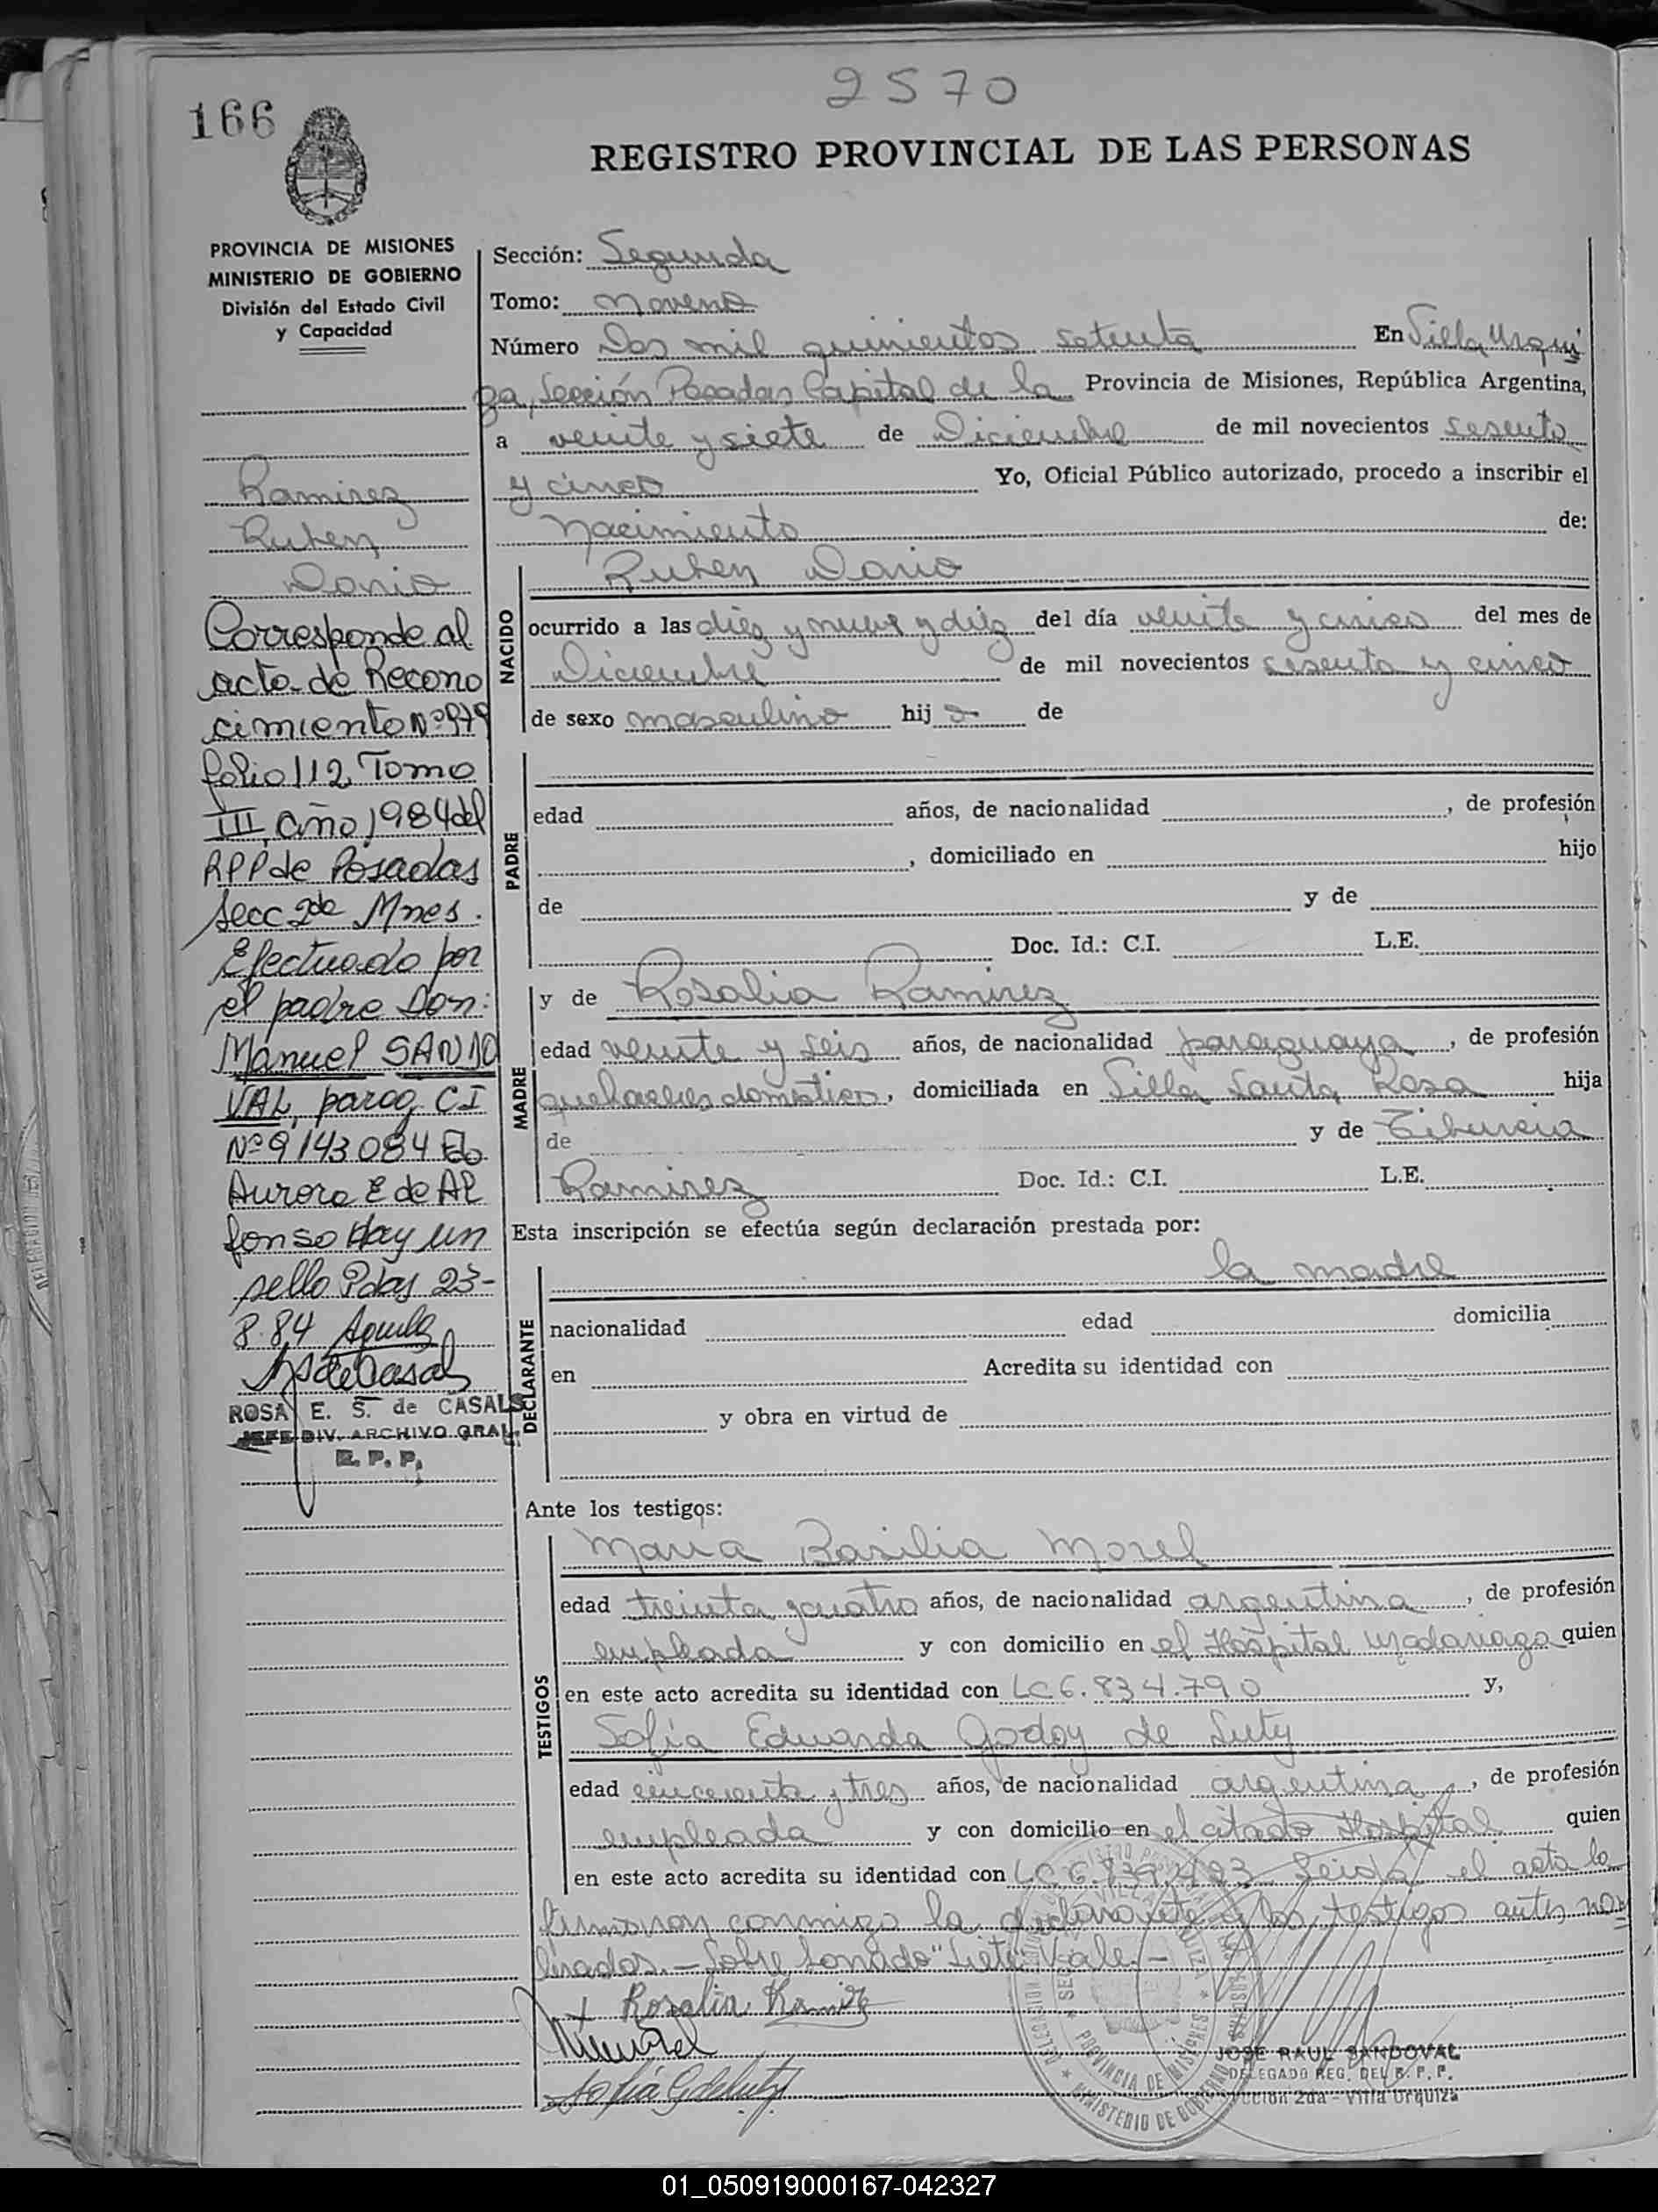 2570
166
REGISTRO PROVINCIAL DE LAS PERSONAS
PROVINCIA DE MISIONES
MINISTERIO DE GOBIERNO
División del Estado Civil
y Capacidad
Ramirez
Ruben
Dario
Corresponde al
acta de Recono
cimiento Nº 979
folio 112 Tomo
III, año 1984 del
RPP de Posadas
Secc 2da Mnes.
Efectuado por
el padre Don:
Manuel SANDO
VAL, parag. CI
Nº 9143084 Fdo
Aurora E de Al
fonso Hay un
sello Pdas 23-
8.84
ROSA E. S. de CASALS
JEFE DIV. ARCHIVO GRAL.
R. P. P.
Sección: Segunda
Tomo: Noveno
Número Dos mil quinientos setenta En Villa Urqui
za, Sección Posadas Capital de la Provincia de Misiones, República Argentina,
a veinte y siete de Diciembre de mil novecientos sesenta
y cinco Yo, Oficial Público autorizado, procedo a inscribir el
Nacimiento de:
NACIDO
Ruben Dario
ocurrido a las diez y nueve y diez del día veinte y cinco del mes de
Diciembre de mil novecientos sesenta y cinco
de sexo masculino hijo de
PADRE
edad años, de nacionalidad , de profesión
, domiciliado en hijo
de y de
Doc. Id.: C.I. L.E.
MADRE
y de Rosalia Ramirez
edad veinte y seis años, de nacionalidad paraguaya, de profesión
quehaceres domésticos, domiciliada en Villa Santa Rosa hija
de y de Tiburcia
Ramirez Doc. Id.: C.I. L.E.
Esta inscripción se efectúa según declaración prestada por:
DECLARANTE
la madre
nacionalidad edad domicilia
en Acredita su identidad con
y obra en virtud de
Ante los testigos:
TESTIGOS
Maria Basilia Morel
edad treinta y cuatro años, de nacionalidad argentina, de profesión
empleada y con domicilio en el Hospital Madariaga quien
en este acto acredita su identidad con LC 6.834.790 y,
Sofía Eduarda Godoy de Luty
edad cincuenta y tres años, de nacionalidad argentina, de profesión
empleada y con domicilio en el citado Hospital quien
en este acto acredita su identidad con LC 6.839.493 Leida el acta la
firmaron conmigo la declarante y los testigos antes nom
brados.- Sobre borrado "Siete" Vale.-
Rosalia Ramirez
JOSE RAUL SANDOVAL
DELEGADO REG. DEL R. P. P.
Sección 2da - Villa Urquiza
PROVINCIA DE MISIONES
MINISTERIO DE GOBIERNO
01_050919000167-042327